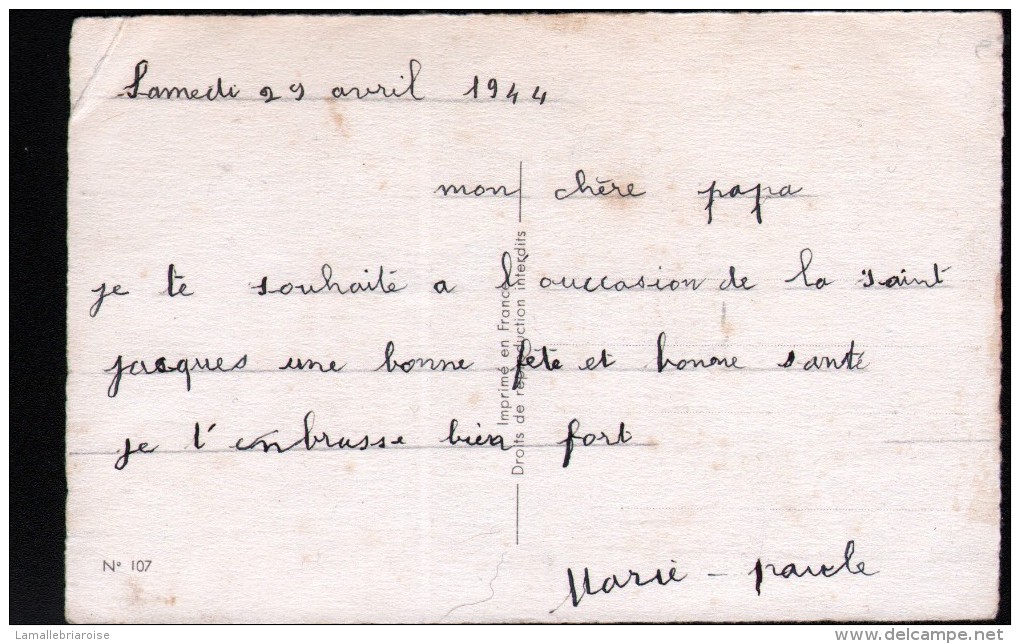 Samedi 29 avril 1944
mon chère papa
je te souhaité a l'ouccasion de la saint
jacques une bonne fête et bonne santé
je t'enbrasse bien fort
Marie - paule
Imprimé en France
Droits de reproduction interdits
N° 107
Lamallebriaroise
delcampe.net